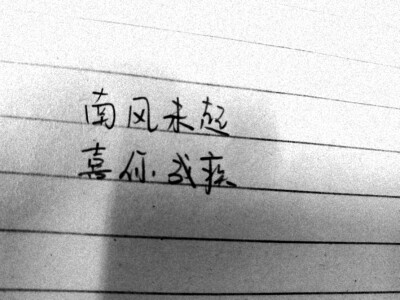 南风未起
喜你成疾